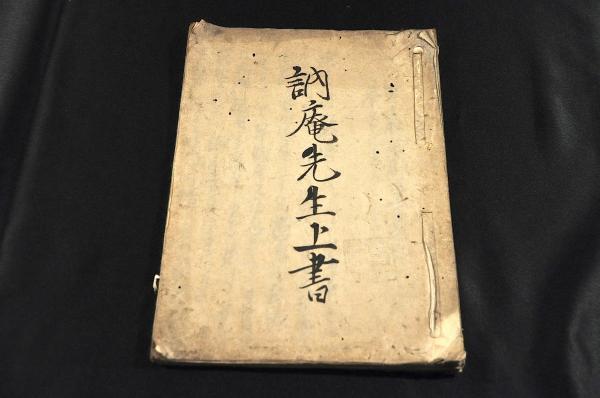 訥庵先生上書